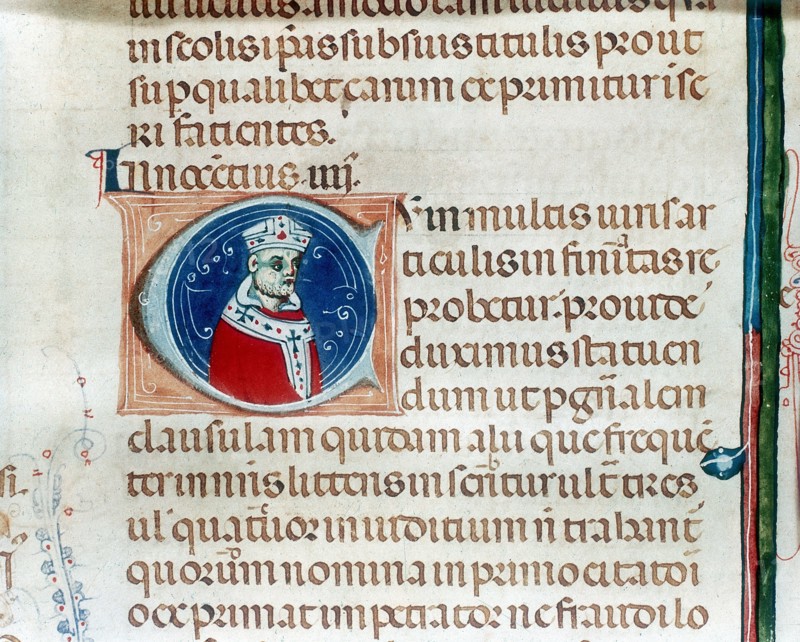 in scolis ip̃as sub suis titulis prout
sup qualibet earum exprimitur ise
ri facientes.
Innocẽtius. iiij.
CUm in multis iuris ar
ticulis infinitas re
probetur. prouide
duximus statuen
dum ut p gñalem
clausulam quidam alii que frequẽ
ter in nr̃is litteris inseritur ult̃ tres
ul' quatuor in iuditium ñ trahant̃
quorum nomina in primo citatoi
o exprimat impetrator ne fraudi lo